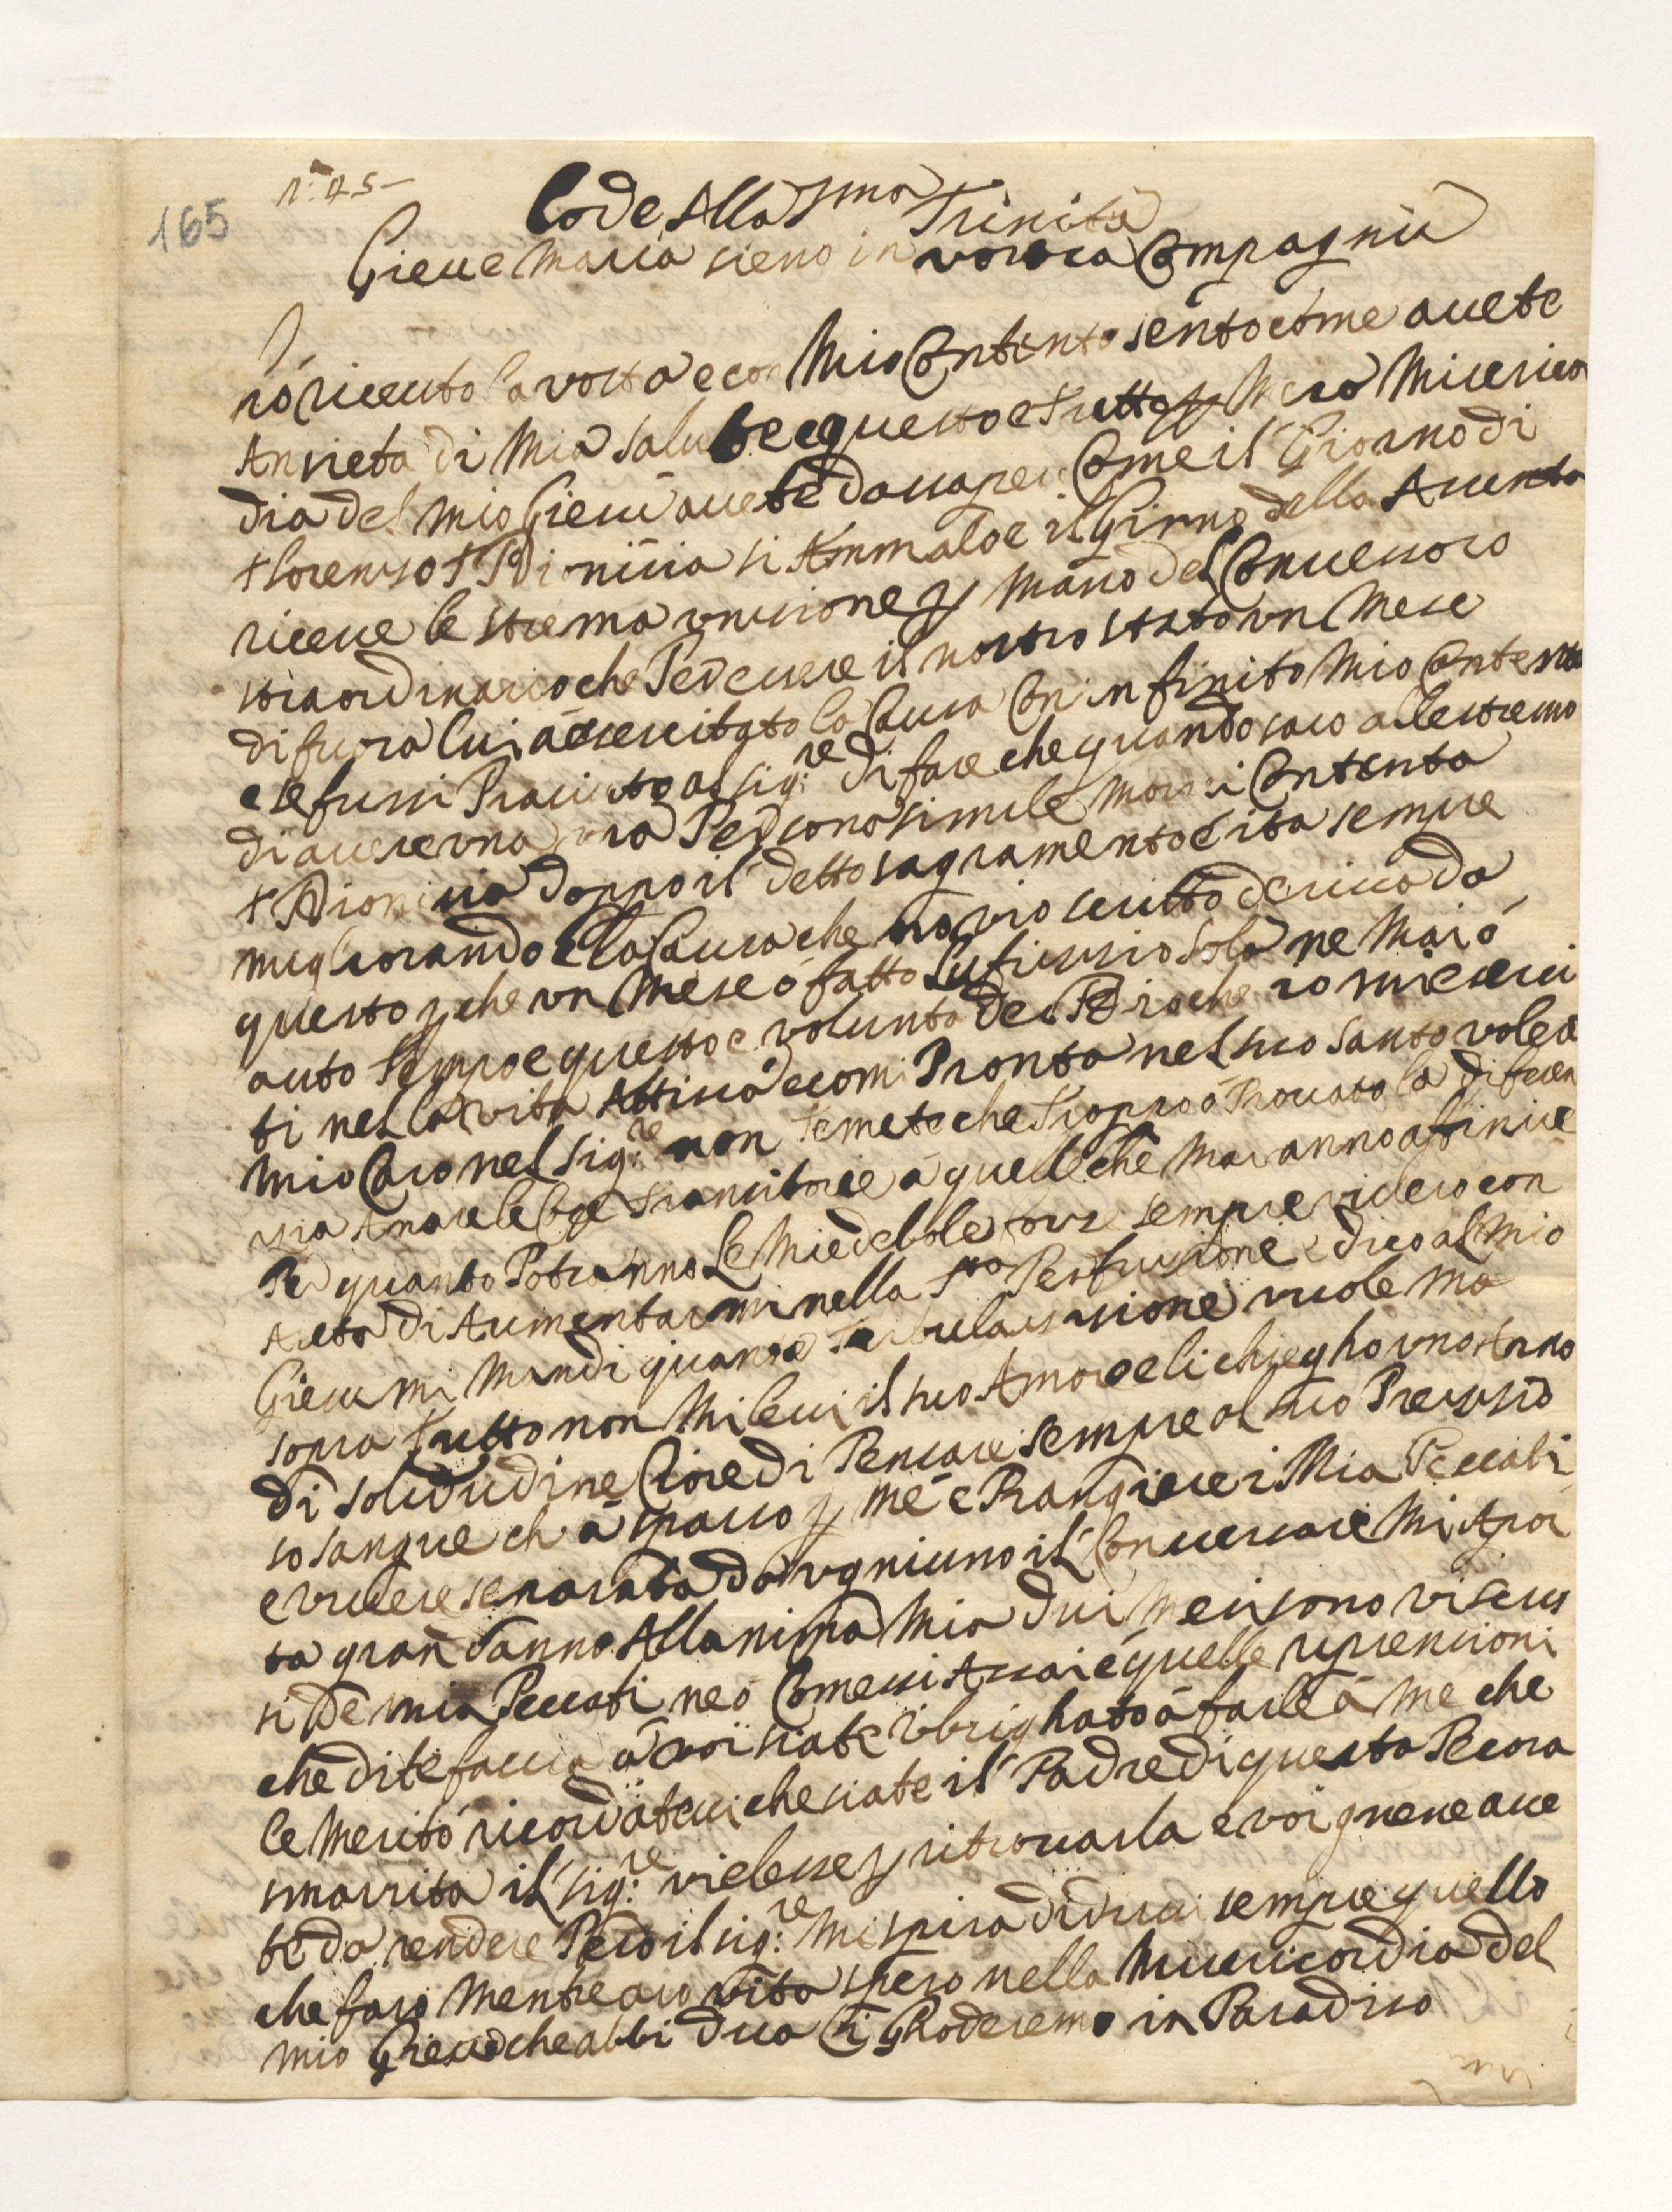 165
n: 75
Lode Alla Sma Trinita
Giesue Maria sieno in vostra Compagnia
io riceuto la vostra e con Mio Contento sento come auete
Ansieta di Mia Salute e questo e tutto p Mera Misericor
dia del mio Giesu auete da sapere Come il Giorno di
S Lorenso S Dionisia si Ammaloe il Girno della Asunta
riceue le strema unsione p mano del Confessoro
straordinario che Per essere il nostro stato un Mese
di fuora lui a esercitato la Cura Con infinito Mio Contento
e se fussi Piaciuto al Sig:re di fare che quando saro allestremo
di auere una Persona simile morei Contenta
S Dionisia doppo il detto sagramento e ita sempre
migliorando e la Causa che no vio scritto deriua da
questo p che un Mese o fatto Lufisio Sola ne Mai o
auto tempo e questo e volunta de Dio che io mi eserci
ti nella vita Attiua ecomi Pronta nel suo Santo volere
Mio Caro nel Sig:re non temete che troppo o Prouato la diferen
sia Amare le Cose transitorie a quelle che Mai anno affinire
Per quanto Potranno Le Mie debole forse sempre vi
di Aumentarmi nella Perfusione e dico al Mio
Giesu mi Mandi quante vuole Ma
sopra tutto non Mi leui il suo Amore e li chiegho uno Anno
di Solitudine Cioe di Pensare sempre al suo Presisio
so sangue ch a sparso p me e Piangiere i Mia Peccati
e viuere separata da ugniuno il Conuersare Mi Apor
ta gran danno Allanima Mia dui Mesi sono
si de mia Peccati ne o Comessi Assai e quelle riprensioni
che dite faccia a voi siate ubrighato a farle a me che
le Merito ricordateui che siate il Padre di questa Pecora
smarrita il Sig:re vi elesse p ritrouarla e voi gnene aue
te da rendere Pero il Sig:re Mi spira di dirui sempre quello
che faro Mentre aro vita spero nella Misericordia del
mio Giesu che abbi dua Ci Ghoderemo in Paradiso